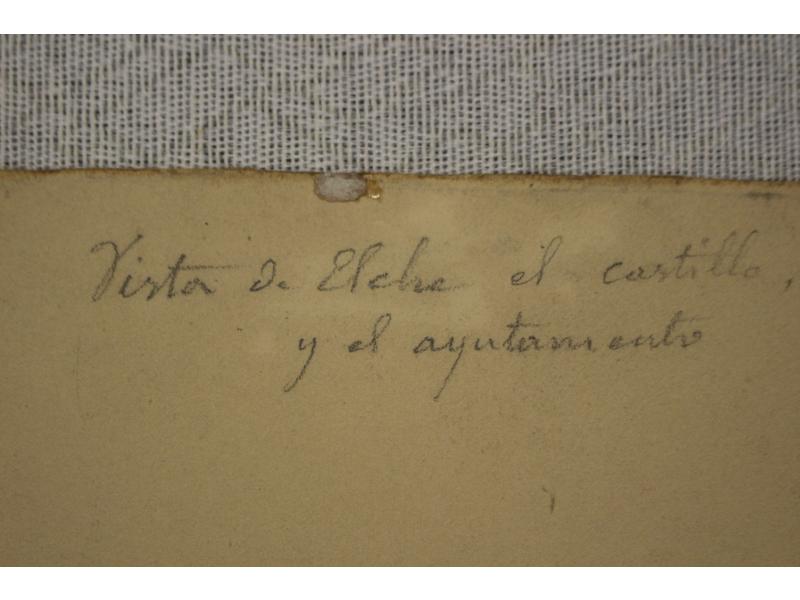 Vista de Elche el castillo,
y el ayutamiento